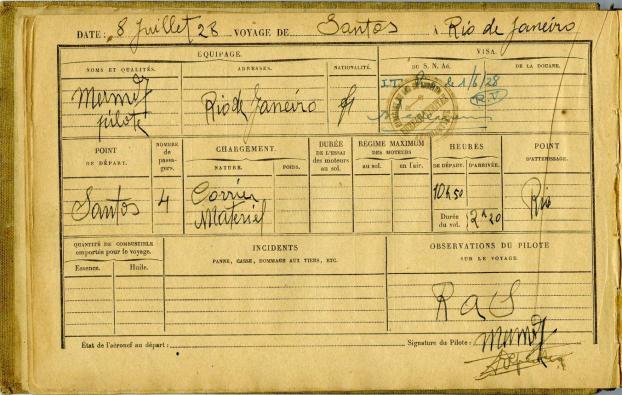 DATE: 8 Juillet 28 VOYAGE DE Santos à Rio de Janeiro
ÉQUIPAGE.
VISA.
NOMS ET QUALITÉS.
ADRESSES.
NATIONALITÉ.
DU S. N. Aé.
DE LA DOUANE.
Mermoz
pilote
Rio de Janeiro
f
I.T. de 1/6/28
R.I.
POINT
DE DÉPART.
NOMBRE
de passa-
gers.
CHARGEMENT.
NATURE.
POIDS.
DURÉE
DE L'ESSAI
des moteurs
au sol.
RÉGIME MAXIMUM
DES MOTEURS
au sol.
en l'air.
HEURES
DE DÉPART.
D'ARRIVÉE.
POINT
D'ATTERRISSAGE.
Santos
4
Courrier
Matériel
10h50
Durée
du vol.
2h20
Rio
QUANTITÉ DE COMBUSTIBLE
emportée pour le voyage.
Essence.
Huile.
INCIDENTS
PANNE, CASSE, DOMMAGE AUX TIERS, ETC.
OBSERVATIONS DU PILOTE
SUR LE VOYAGE.
R a S
État de l'aéronef au départ :
Signature du Pilote :
Mermoz